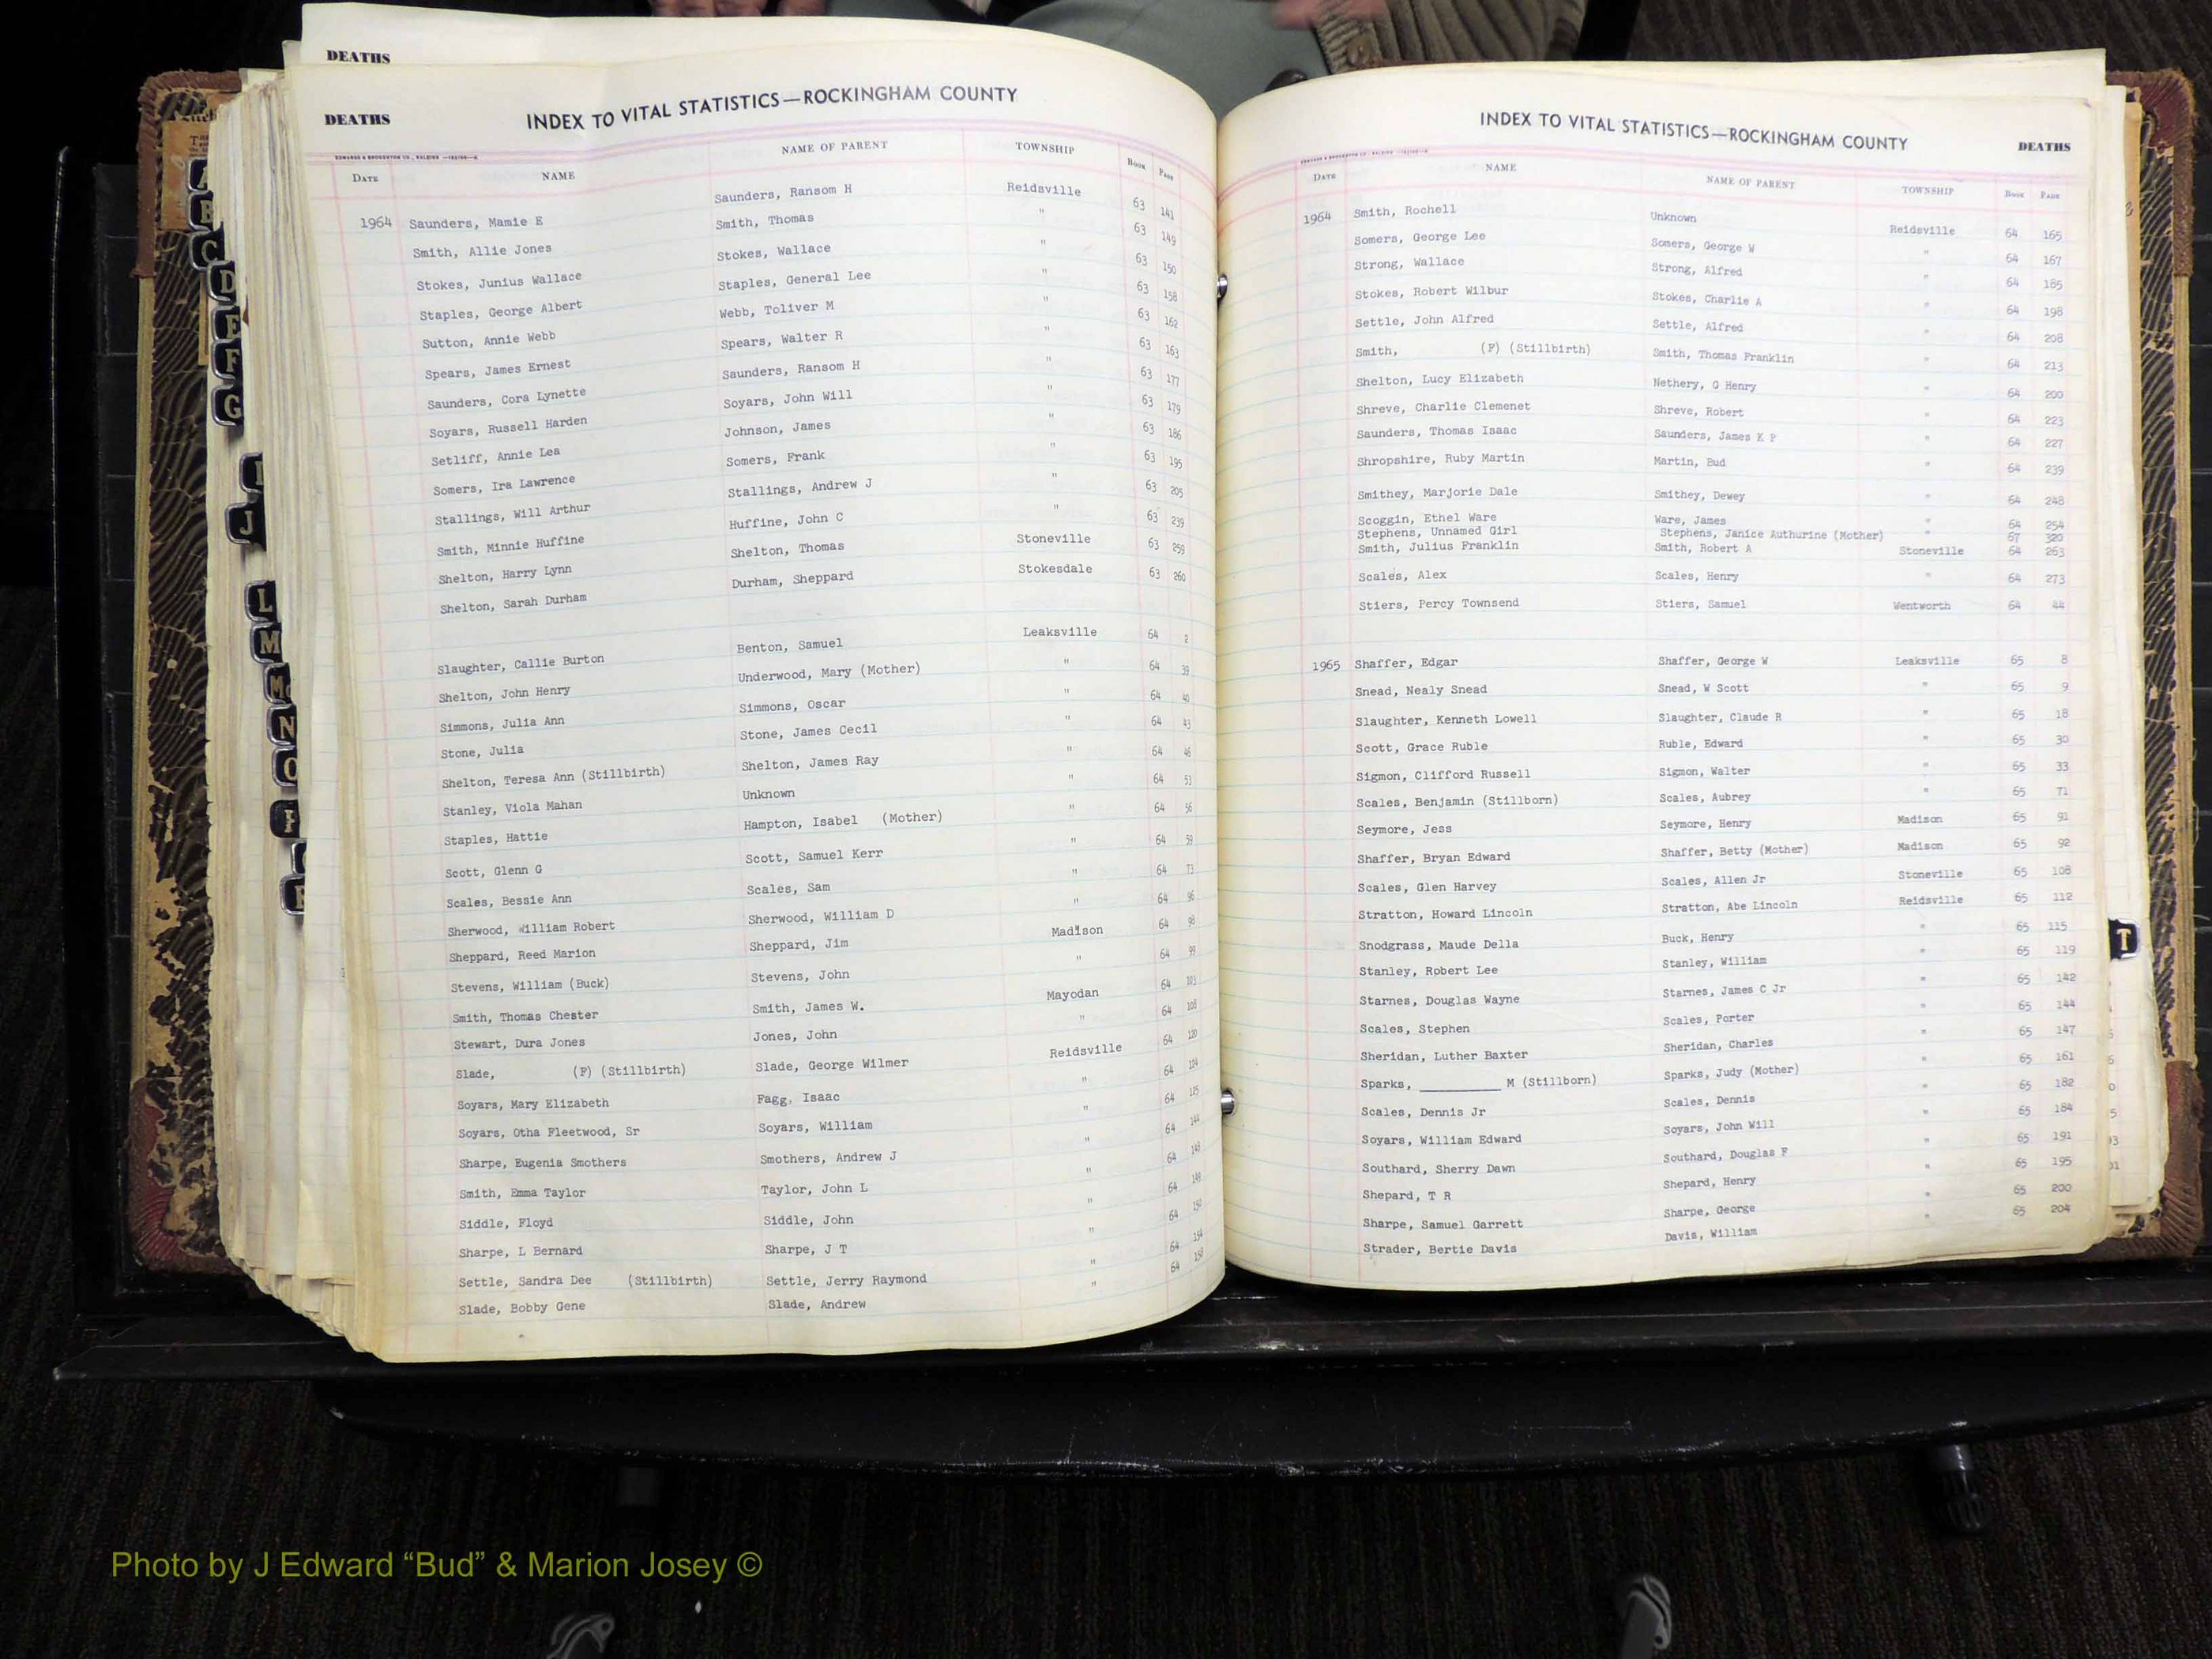 DEATHS
DEATHS INDEX TO VITAL STATISTICS—ROCKINGHAM COUNTY
DATE NAME NAME OF PARENT TOWNSHIP BOOK PAGE
1964 Saunders, Mamie E Saunders, Ransom H Reidsville 63 141
Smith, Allie Jones Smith, Thomas " 63 149
Stokes, Junius Wallace Stokes, Wallace " 63 150
Staples, George Albert Staples, General Lee " 63 158
Sutton, Annie Webb Webb, Toliver M " 63 162
Spears, James Ernest Spears, Walter R " 63 163
Saunders, Cora Lynette Saunders, Ransom H " 63 177
Soyars, Russell Harden Soyars, John Will " 63 179
Setliff, Annie Lea Johnson, James " 63 186
Somers, Ira Lawrence Somers, Frank " 63 195
Stallings, Will Arthur Stallings, Andrew J " 63 205
Smith, Minnie Huffine Huffine, John C " 63 239
Shelton, Harry Lynn Shelton, Thomas Stoneville 63 259
Shelton, Sarah Durham Durham, Sheppard Stokesdale 63 260
Slaughter, Callie Burton Benton, Samuel Leaksville 64 2
Shelton, John Henry Underwood, Mary (Mother) " 64 39
Simmons, Julia Ann Simmons, Oscar " 64 40
Stone, Julia Stone, James Cecil " 64 43
Shelton, Teresa Ann (Stillbirth) Shelton, James Ray " 64 46
Stanley, Viola Mahan Unknown " 64 53
Staples, Hattie Hampton, Isabel (Mother) " 64 56
Scott, Glenn G Scott, Samuel Kerr " 64 59
Scales, Bessie Ann Scales, Sam " 64 73
Sherwood, William Robert Sherwood, William D " 64 96
Sheppard, Reed Marion Sheppard, Jim Madison 64 98
Stevens, William (Buck) Stevens, John " 64 99
Smith, Thomas Chester Smith, James W. Mayodan 64 103
Stewart, Dura Jones Jones, John " 64 108
Slade, (F) (Stillbirth) Slade, George Wilmer Reidsville 64 120
Soyars, Mary Elizabeth Fagg, Isaac " 64
Soyars, Otha Fleetwood, Sr Soyars, William " 64 125
Sharpe, Eugenia Smothers Smothers, Andrew J " 64 144
Smith, Emma Taylor Taylor, John L " 64
Siddle, Floyd Siddle, John " 64 149
Sharpe, L Bernard Sharpe, J T " 64 150
Settle, Sandra Dee (Stillbirth) Settle, Jerry Raymond " 64 154
Slade, Bobby Gene Slade, Andrew " 64 158
INDEX TO VITAL STATISTICS—ROCKINGHAM COUNTY DEATHS
DATE NAME NAME OF PARENT TOWNSHIP BOOK PAGE
1964 Smith, Rochell Unknown Reidsville 64 165
Somers, George Lee Somers, George W " 64 167
Strong, Wallace Strong, Alfred " 64 185
Stokes, Robert Wilbur Stokes, Charlie A " 64 198
Settle, John Alfred Settle, Alfred " 64 208
Smith, (F) (Stillbirth) Smith, Thomas Franklin " 64 213
Shelton, Lucy Elizabeth Nethery, G Henry " 64 200
Shreve, Charlie Clemenet Shreve, Robert " 64 223
Saunders, Thomas Isaac Saunders, James K P " 64 227
Shropshire, Ruby Martin Martin, Bud " 64 239
Smithey, Marjorie Dale Smithey, Dewey " 64 248
Scoggin, Ethel Ware Ware, James " 64 254
Stephens, Unnamed Girl Stephens, Janice Authurine (Mother) " 67 320
Smith, Julius Franklin Smith, Robert A Stoneville 64 263
Scales, Alex Scales, Henry " 64 273
Stiers, Percy Townsend Stiers, Samuel Wentworth 64 44
1965 Shaffer, Edgar Shaffer, George W Leaksville 65 8
Snead, Nealy Snead Snead, W Scott " 65 9
Slaughter, Kenneth Lowell Slaughter, Claude R " 65 18
Scott, Grace Ruble Ruble, Edward " 65 30
Sigmon, Clifford Russell Sigmon, Walter " 65 33
Scales, Benjamin (Stillborn) Scales, Aubrey " 65 71
Seymore, Jess Seymore, Henry Madison 65 91
Shaffer, Bryan Edward Shaffer, Betty (Mother) Madison 65 92
Scales, Glen Harvey Scales, Allen Jr Stoneville 65 108
Stratton, Howard Lincoln Stratton, Abe Lincoln Reidsville 65 112
Snodgrass, Maude Della Buck, Henry " 65 115
Stanley, Robert Lee Stanley, William " 65 119
Starnes, Douglas Wayne Starnes, James C Jr " 65 142
Scales, Stephen Scales, Porter " 65 144
Sheridan, Luther Baxter Sheridan, Charles " 65 147
Sparks, __________ M (Stillborn) Sparks, Judy (Mother) " 65 161
Scales, Dennis Jr Scales, Dennis " 65 182
Soyars, William Edward Soyars, John Will " 65 184
Southard, Sherry Dawn Southard, Douglas F " 65 191
Shepard, T R Shepard, Henry " 65 195
Sharpe, Samuel Garrett Sharpe, George " 65 200
Strader, Bertie Davis Davis, William " 65 204
D
E
F
G
J
L
M
N
O
T
Photo by J Edward “Bud” & Marion Josey ©